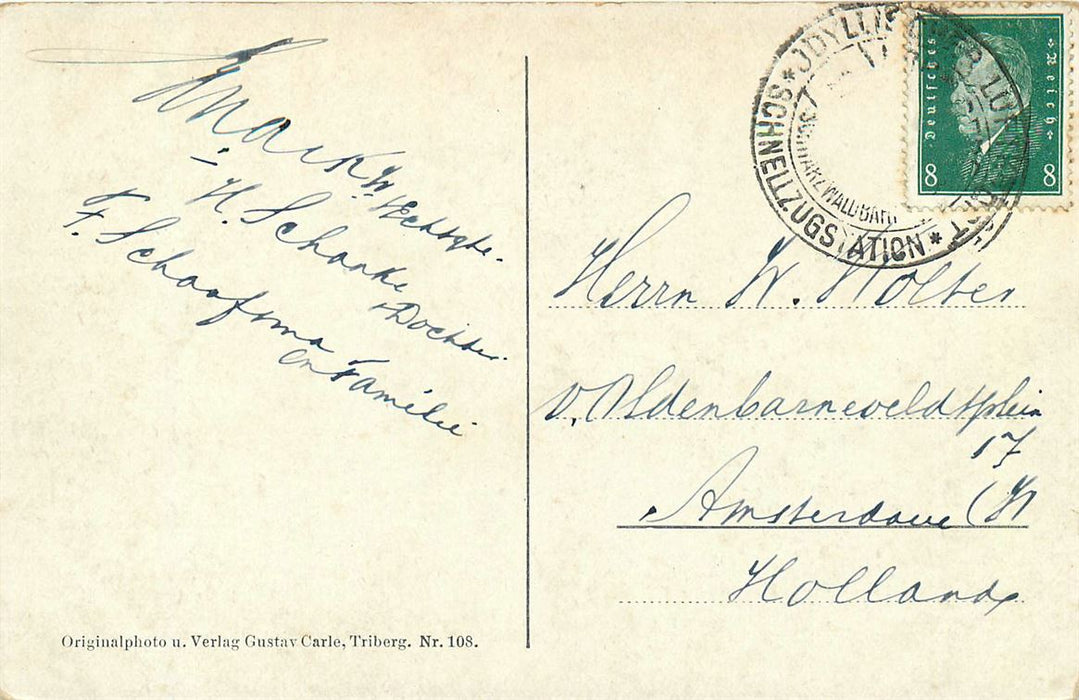 W. Wechsche.
H. Schanke
+ Dochter.
F. Schaafsma
en Familie
Originalphoto u. Verlag Gustav Carle, Triberg. Nr. 108.
*JDYLLISCHER LUFTKURORT
*SCHNELLZUGSTATION*
SCHWARZWALDBAHN
Deutsches Reich
8 8
Herrn W. Wolter
v. Oldenbarneveldtplein
17
Amsterdam (W
Holland